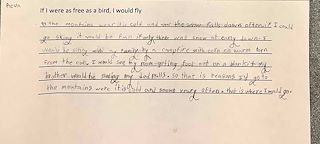 If I were as free as a bird, I would fly
to the mountains were it's cold and were the snow falls down often. if I could
go skiing it would be fun if there was snow at early dawn. I
would be siting with my family by a campfire with corn so warm torn
from the cob. I would see my mom geting food out on a blankit my
brother would be my dad pulls. so that is reasons I'd go to
the mountains were it's cold and snows very often. that is where I would go.